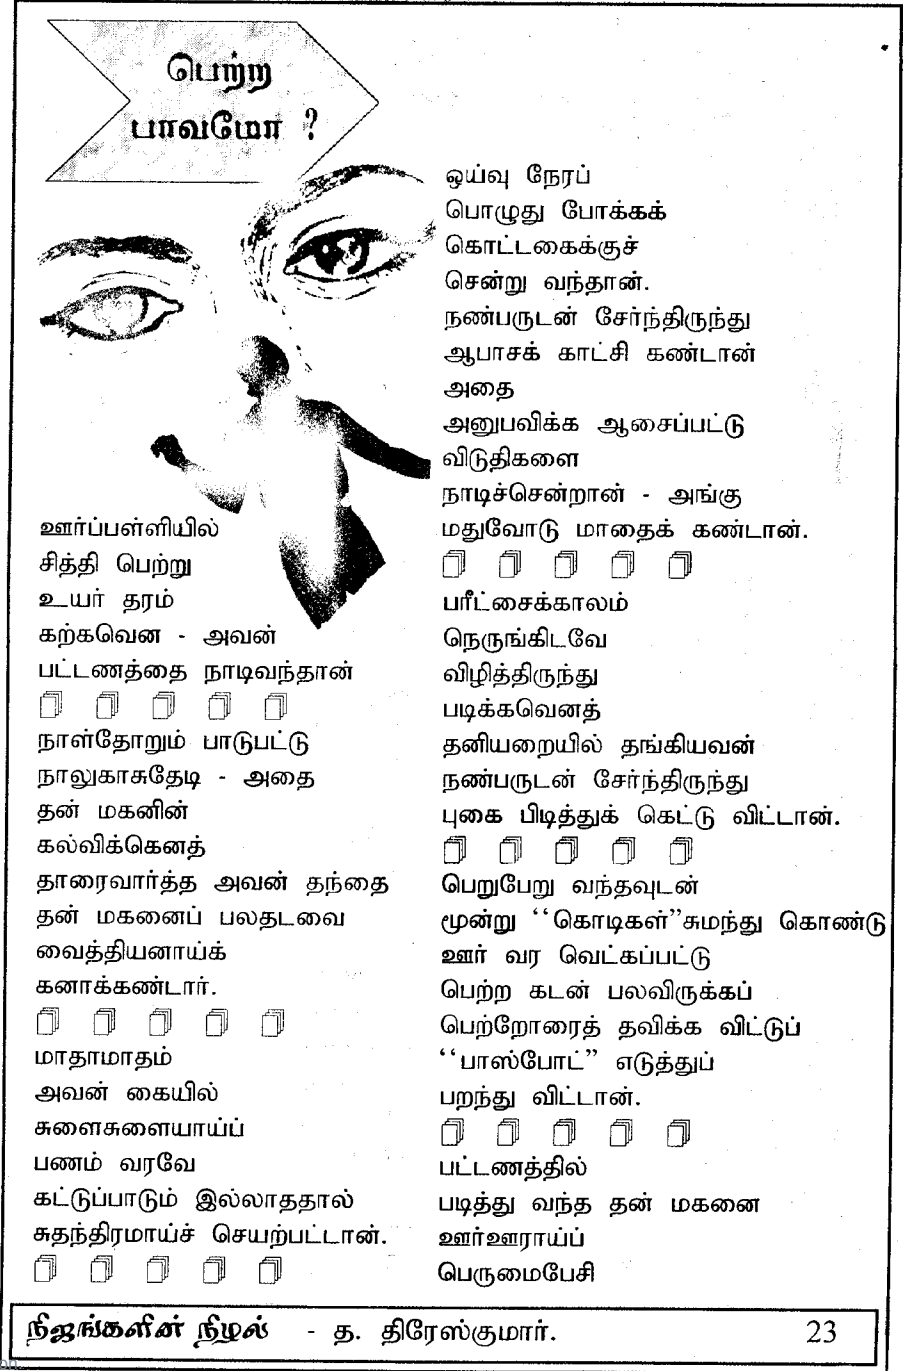 பெற்ற
பாவமோ ?
ஊர்ப்பள்ளியில்
சித்தி பெற்று
உயர் தரம்
கற்கவென - அவன்
பட்டணத்தை நாடிவந்தான்
நாள்தோறும் பாடுபட்டு
நாலுகாசுதேடி - அதை
தன் மகனின்
கல்விக்கெனத்
தாரைவார்த்த அவன் தந்தை
தன் மகனைப் பலதடவை
வைத்தியனாய்க்
கனாக்கண்டார்.
மாதாமாதம்
அவன் கையில்
சுளைசுளையாய்ப்
பணம் வரவே
கட்டுப்பாடும் இல்லாததால்
சுதந்திரமாய்ச் செயற்பட்டான்.
ஒய்வு நேரப்
பொழுது போக்கக்
கொட்டகைக்குச்
சென்று வந்தான்.
நண்பருடன் சேர்ந்திருந்து
ஆபாசக் காட்சி கண்டான்
அதை
அனுபவிக்க ஆசைப்பட்டு
விடுதிகளை
நாடிச்சென்றான் - அங்கு
மதுவோடு மாதைக் கண்டான்.
பரீட்சைக்காலம்
நெருங்கிடவே
விழித்திருந்து
படிக்கவெனத்
தனியறையில் தங்கியவன்
நண்பருடன் சேர்ந்திருந்து
புகை பிடித்துக் கெட்டு விட்டான்.
பெறுபேறு வந்தவுடன்
மூன்று “கொடிகள்”சுமந்து கொண்டு
ஊர் வர வெட்கப்பட்டு
பெற்ற கடன் பலவிருக்கப்
பெற்றோரைத் தவிக்க விட்டுப்
“பாஸ்போட்” எடுத்துப்
பறந்து விட்டான்.
பட்டணத்தில்
படித்து வந்த தன் மகனை
ஊர்ஊராய்ப்
பெருமைபேசி
நிஜங்களின் நிழல் - த. திரேஸ்குமார். 23